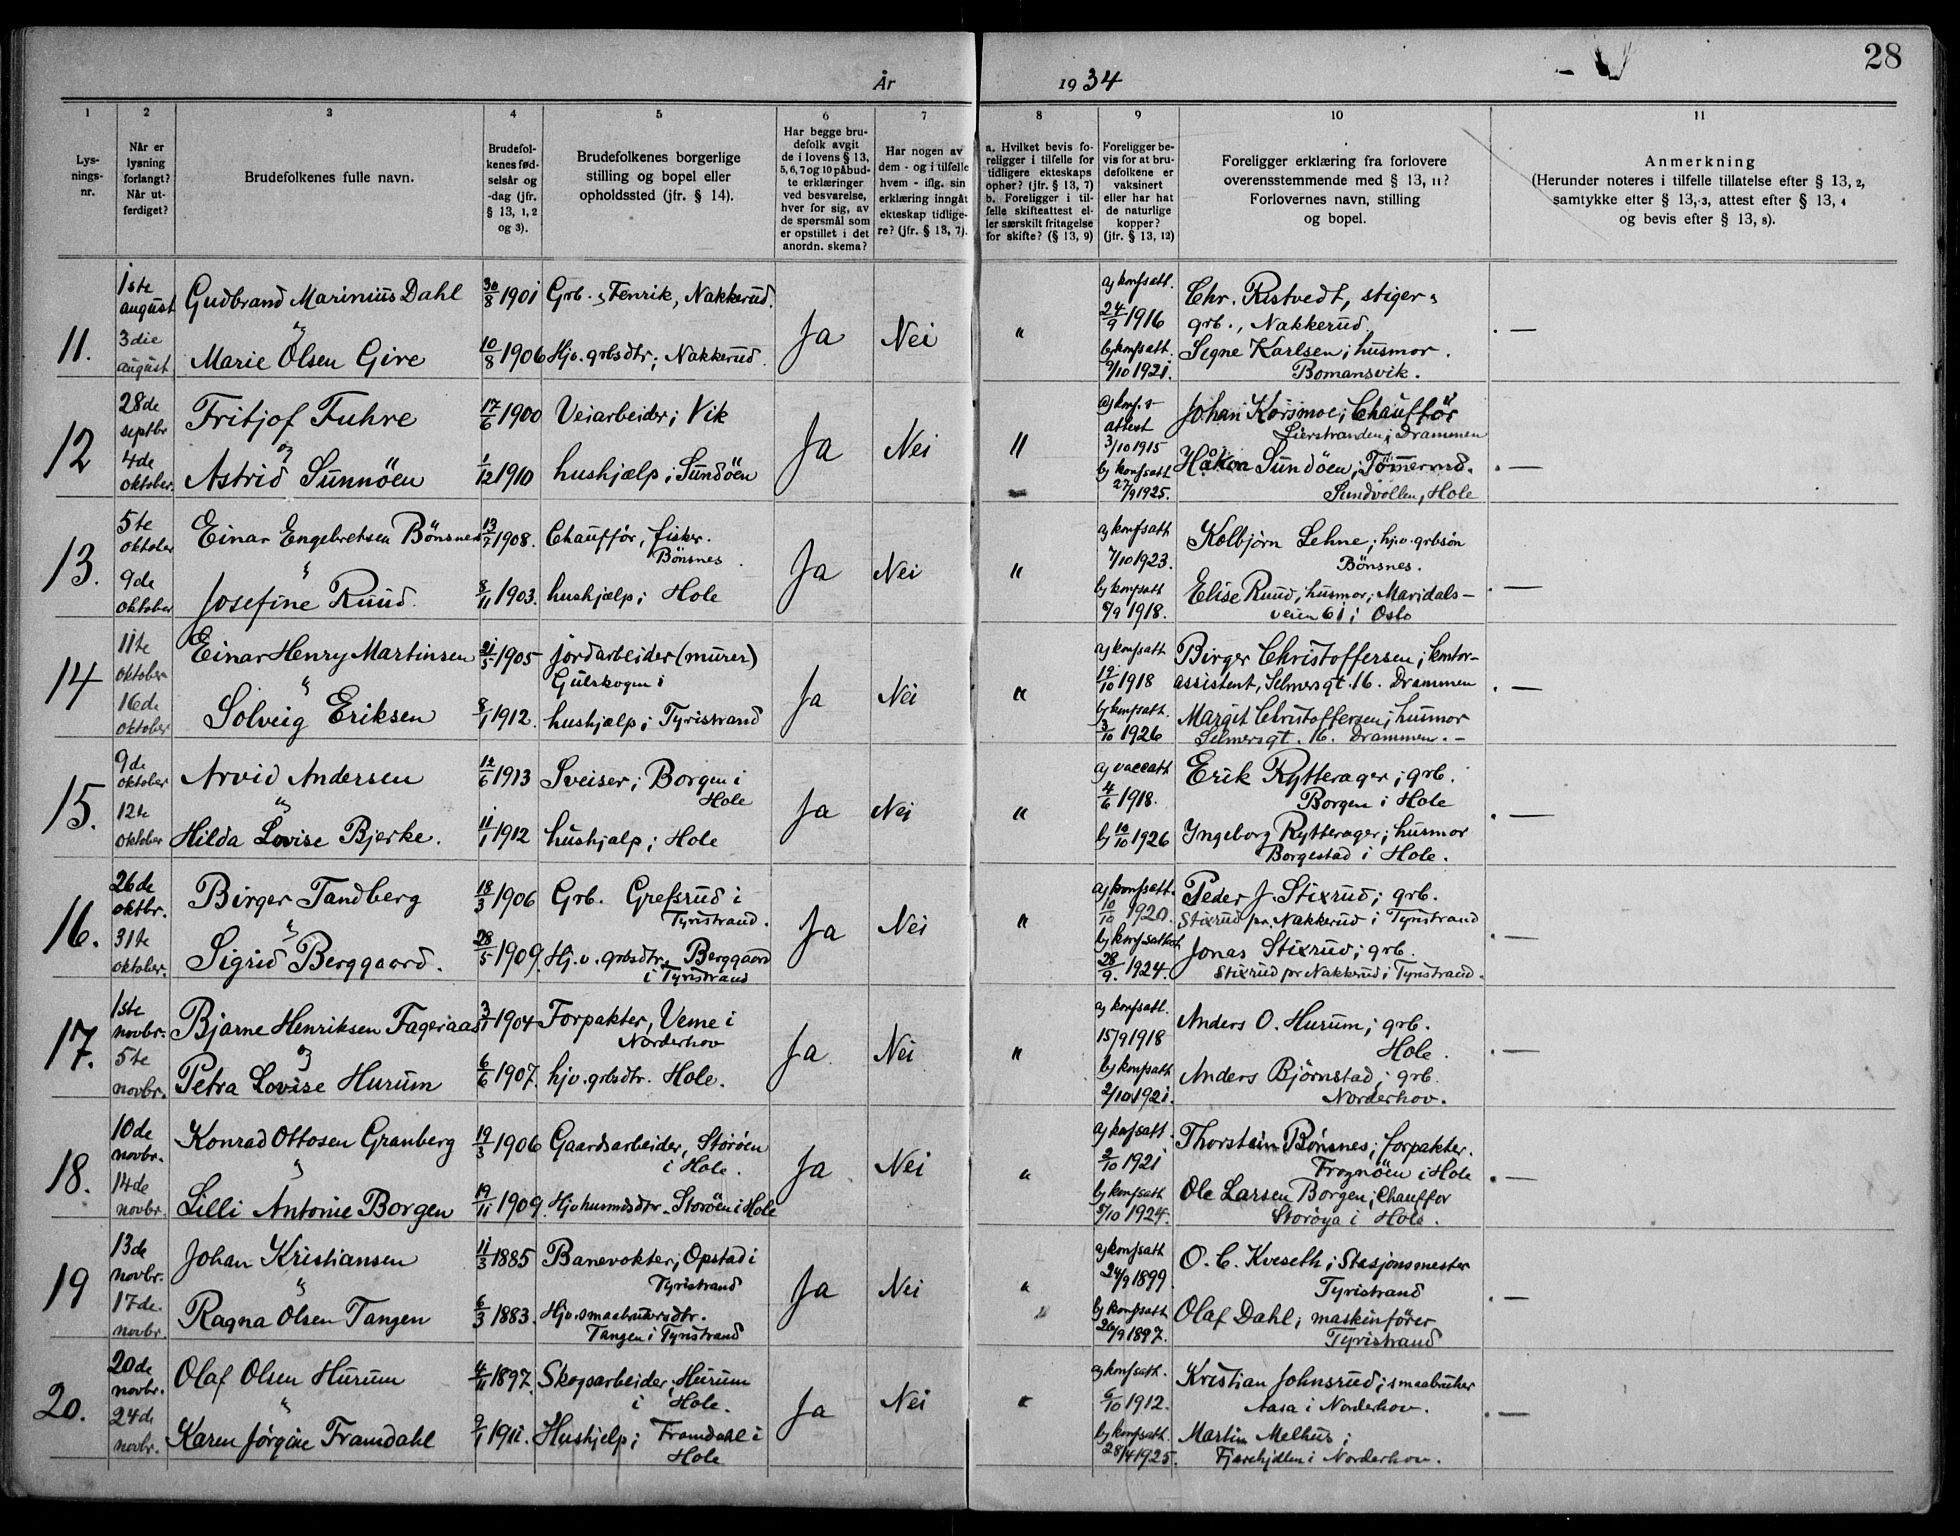 28
År 1934
1 2 3 4 5 6 7 8 9 10 11
Lys-
nings-
nr.
Når er
lysning
forlangt?
Når ut-
ferdiget?
Brudefolkenes fulle navn.
Brudefol-
kenes fød-
selsår og
-dag (jfr.
§ 13, 1, 2
og 3).
Brudefolkenes borgerlige
stilling og bopel eller
opholdssted (jfr. § 14).
Har begge bru-
defolk avgit
de i lovens § 13,
5, 6, 7 og 10 påbud-
te erklæringer
ved besvarelse,
hver for sig, av
de spørsmål som
er opstillet i det
anordn. skema?
Har nogen av
dem - og i tilfelle
hvem - iflg. sin
erklæring inngåt
ekteskap tidlige-
re? (jfr. § 13, 7).
a. Hvilket bevis fo-
religger i tilfelle for
tidligere ekteskaps
ophør? (jfr. § 13, 7)
b. Foreligger i til-
felle skifteattest el-
ler særskilt fritagelse
for skifte? (§ 13, 9)
Foreligger be-
vis for at bru-
defolkene er
vaksinert
eller har hat
de naturlige
kopper?
(jfr. § 13, 12)
Foreligger erklæring fra forlovere
overensstemmende med § 13, 11?
Forlovernes navn, stilling
og bopel.
Anmerkning
(Herunder noteres i tilfelle tillatelse efter § 13, 2,
samtykke efter § 13, 3, attest efter § 13, 4
og bevis efter § 13, 8).
11.
1ste
august
3die
august
Gudbrand Marinius Dahl
og
Marie Olsen Gire
30/8 1901
10/8 1906
Grb. s Fenrik, Nakkerud.
Hjv. grbsdtr; Nakkerud.
Ja
Nei
"
a) konfsatt.
24/9 1916
b) konfsatt.
9/10 1921.
Chr. Ristvedt, stiger
grb., Nakkerud.
Signe Karlsen; husmor.
Bomansvik.
. —
12
28de
septbr
4de
oktober.
Fritjof Fuhre
og
Astrid Sunnöen
17/6 1900
1/12 1910
Veiarbeider; Vik
hushjælp; Sundöen
Ja
Nei
"
a) konf.s-
attest
3/10 1915
b) konfsatt.
27/9 1925.
Johan Korsmoe; Chauffør
Lierstranden; Drammen
Håkon Sundöen; Tömmermd.
Sundvollen, Hole
. —
13.
5te
oktober
9de
oktober
Einar Engebretsen Bönsnes
og
Josefine Ruud.
13/7 1908.
8/11 1903.
Chauffør, fisker.
Bönsnes.
hushjælp; Hole
Ja
Nei
"
a) konfsatt
7/10 1923.
b) konfsatt
8/9 1918.
Kolbjörn Lehne; hjv. grbsön
Bönsnes.
Elise Ruud; husmor; Maridals-
veien 61; Oslo
. —
14
11te
oktober
16de
oktober
Einar Henry Martinsen
og
Solveig Eriksen
21/5 1905
8/1 1912.
jordarbeider (murer)
Gulskogen;
hushjælp; Tyristrand
Ja
Nei
"
a) konfsatt
19/10 1918
b) konfsatt.
3/10 1926
Birger Christoffersen; kontor-
assistent, Selmersgt. 16. Drammen
Margit Christoffersen; husmor
Selmersgt. 16. Drammen. -
. —
15.
9de
oktober
12te
oktober
Arvid Andersen
og
Hilda Lovise Bjerke.
12/6 1913
11/1 1912
Sveiser; Borgen i
Hole
hushjalp; Hole
Ja
Nei
"
a) vaccatt
4/6 1918.
b) 10/10 1926
Erik Rytterager; grb.
Borgen i Hole
Ingeborg Rytterager; husmor
Borgestad i Hole.
. —
16.
26de
oktbr.
31te
oktober.
Birger Tandberg
og
Sigrid Berggaard.
18/3 1906
28/5 1909.
Grb. Grefsrud i
Tyristrand.
Hj.v. grbsdtr, Berggaard
i Tyristrand
Ja
Nei
"
a) konfsatt.
10/10 1920.
b) konfsattest
28/9. 1924.
Peder J. Stixrud; grb.
Stixrud pr. Nakkerud i Tyristrand
Jonas Stixrud; grb.
Stixrud pr Nakkerud i Tyristrand.
. —
17.
1ste
novbr.
5te
novbr.
Bjarne Henriksen Fageraas
og
Petra Lovise Hurum
3/1 1904
6/6 1907.
Forpakter, Veme i
Norderhov
hjv. grbsdtr. Hole.
Ja
Nei
"
a) konfsatt.
15/9 1918
b) konfsatt
2/10 1921.
Anders O. Hurum; grb.
Hole.
Anders Björnstad; grb.
Norderhov.
. —
18.
10de
novbr.
14de
novbr.
Konrad Ottosen Granberg
og
Lilli Antonie Borgen
19/3 1906
19/11 1909.
Gaardsarbeider, Storöen
i Hole.
Hjv husmdsdtr. Storöen i Hole
Ja
Nei
"
a) konfsatt.
2/10 1921
b) konfsatt
5/10 1924.
Thorstein Bönsnes; forpakter.
Frognöen i Hole
Ole Larsen Borgen; Chauffør
Storøya i Hole.
. —
19
13de
novbr.
17de.
novbr.
Johan Kristiansen
og
Ragna Olsen Tangen
11/3 1885
6/3 1883.
Banevokter; Opstad i
Tyristrand
Hjv. smaabrukersdtr.
Tangen i Tyristrand
Ja
Nei
"
a) konfsatt
24/9 1899.
b) konfsatt
26/9 1897.
O. C. Kveseth; Stasjonsmester
Tyristrand
Olaf Dahl; maskinfører
Tyristrand
. —
20.
20de
novbr.
24de
novbr.
Olaf Olsen Hurum
og
Karen Jørgine Framdahl
4/11 1897.
9/1 1911.
Skogsarbeider; Hurum
i Hole.
Hushjelp; Framdahl i
Hole
Ja
Nei
"
a) konfsatt.
6/10 1912.
b) konfsatt.
28/4 1925.
Kristian Johnsrud; smaabruker
Aasa i Norderhov.
Martin Melhus;
i Norderhov.
. —